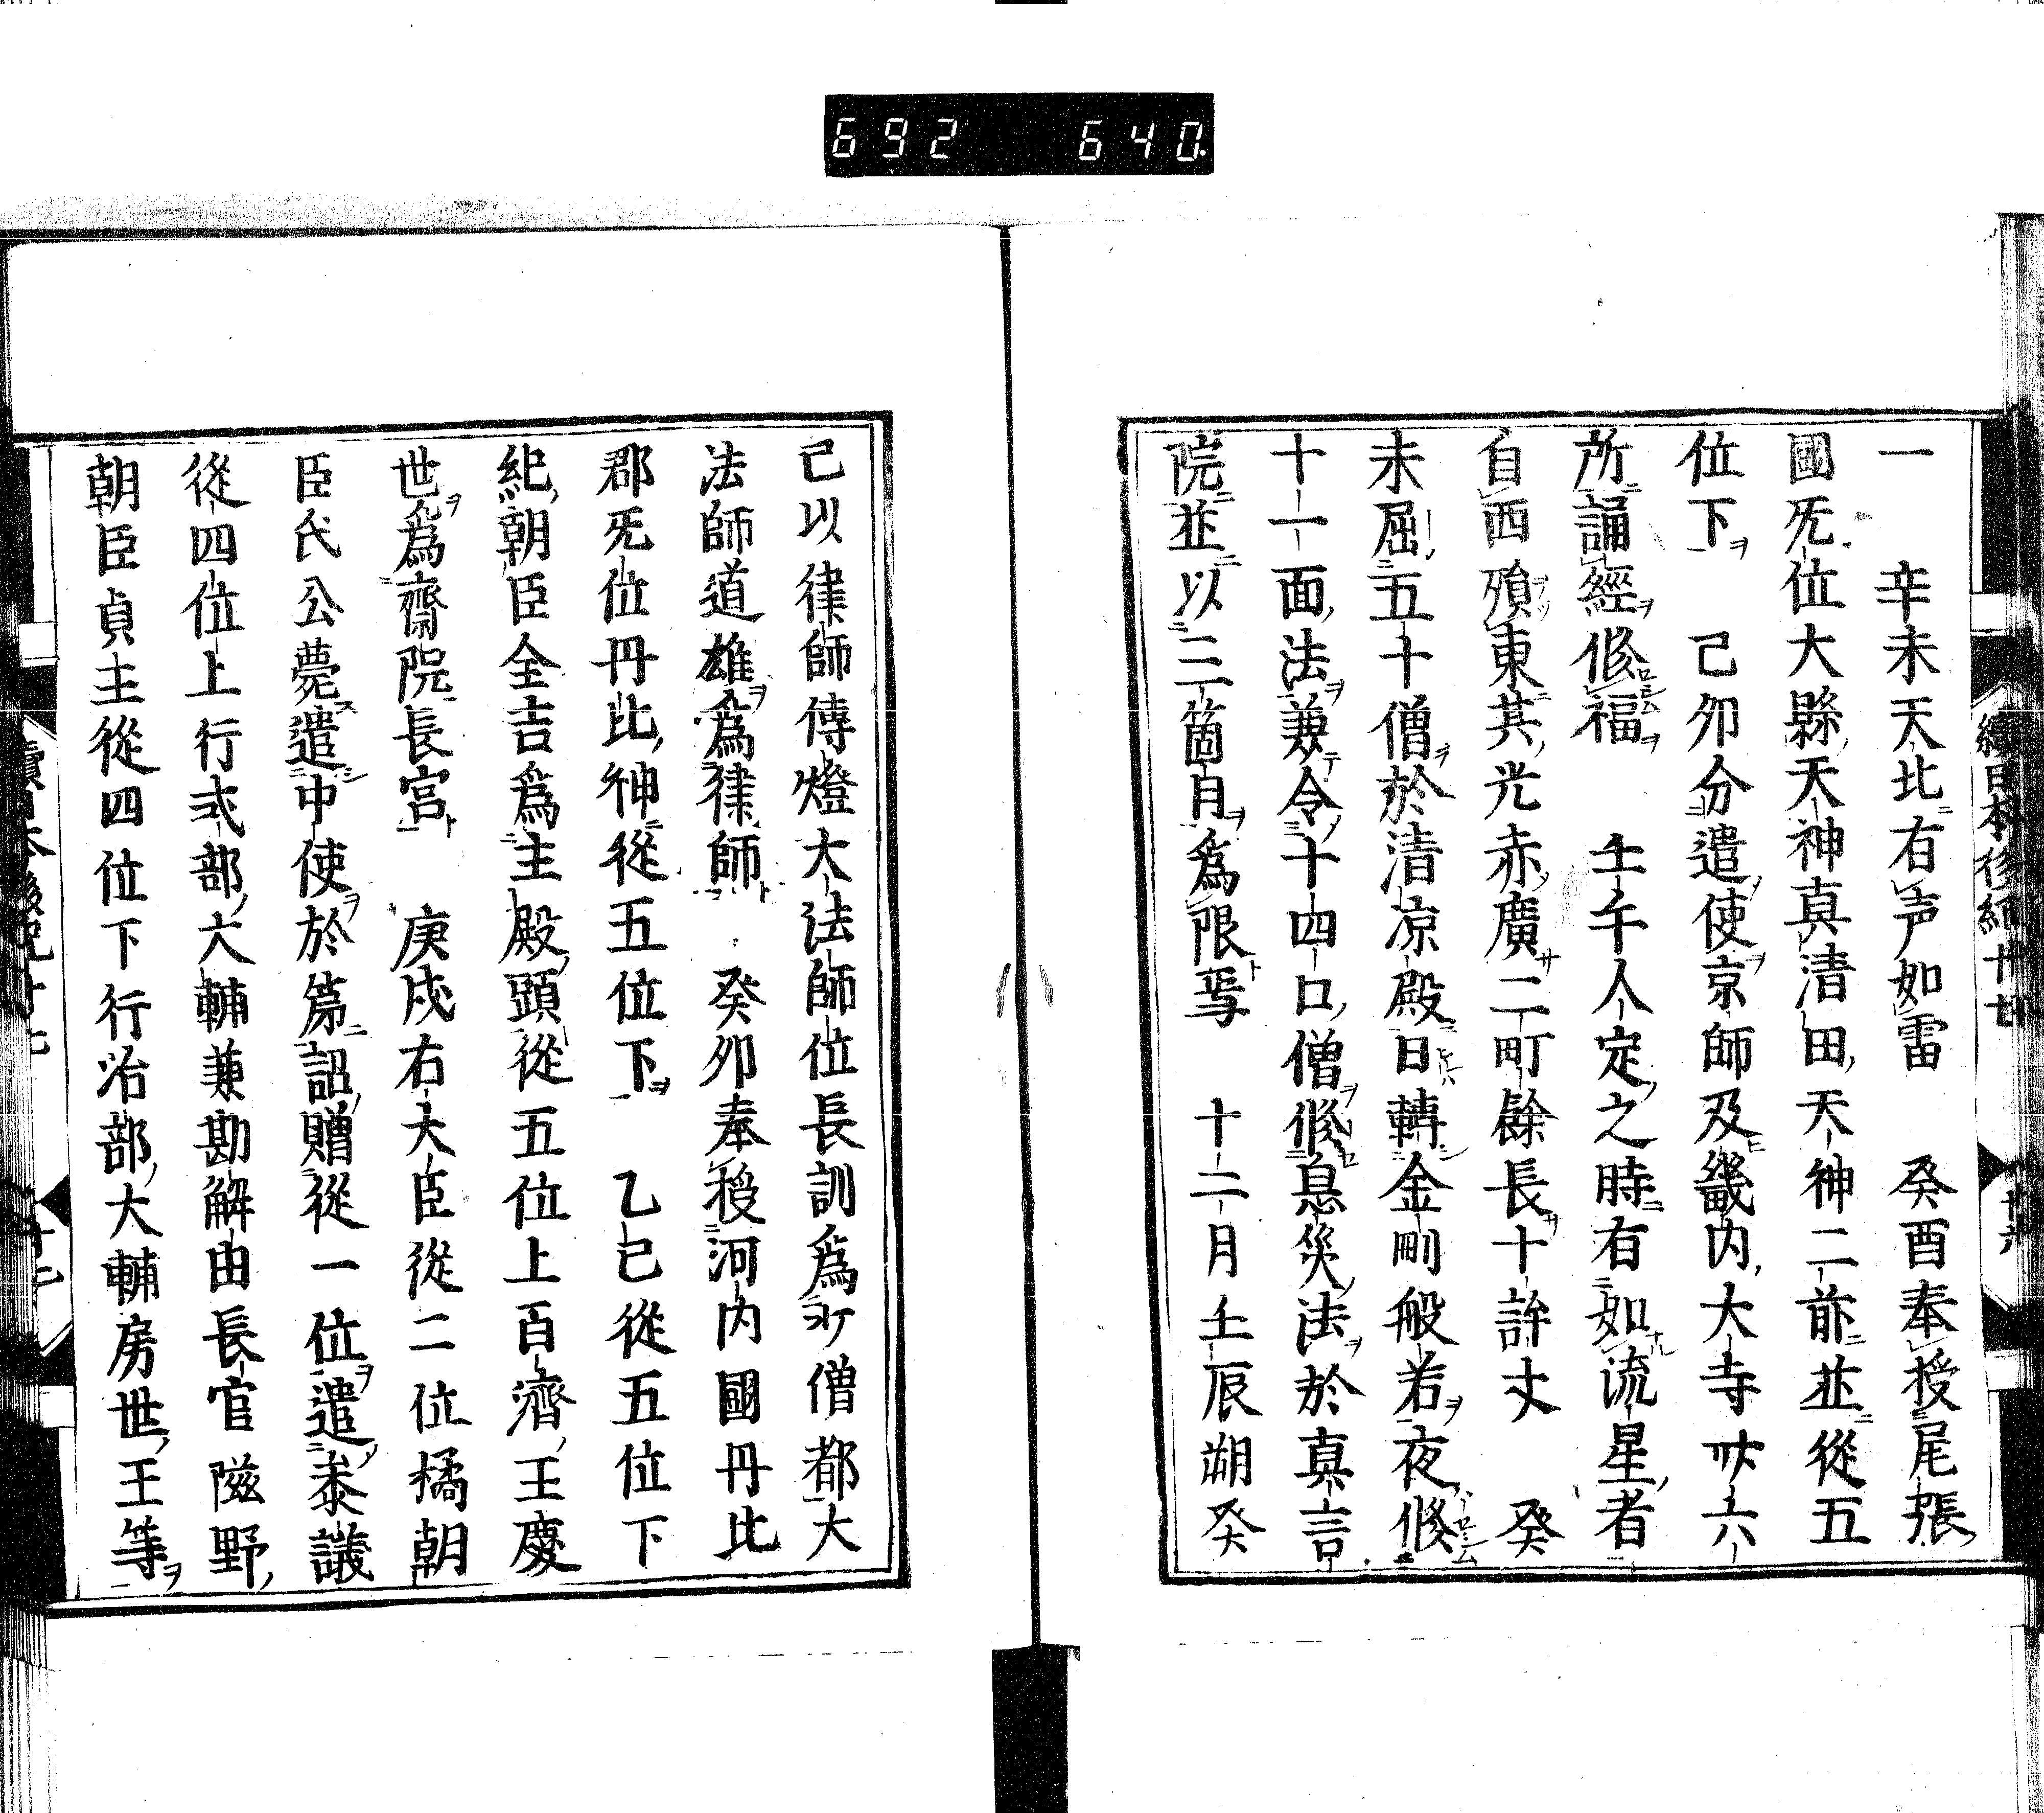 692 640
一 辛未天北有声如雷 癸酉奉授尾張
國旡位大縣天神真清田天神二前並從五
位下 己卯分遣使京師及畿内大寺卅六
所誦經修福 壬午人定之時有如流星者
自西殞東其光赤廣二町餘長十許丈 癸
未屈五十僧於清凉殿日轉金剛般若夜修
十一面法兼令十四口僧修息災法於真言
院並以三箇月爲限焉 十二月壬辰朔癸
巳以律師傳燈大法師位長訓爲少僧都大
法師道雄爲律師 癸卯奉授河内國丹比
郡旡位丹比神從五位下 乙巳從五位下
紀朝臣全吉爲主殿頭從五位上百濟王慶
世爲齋院長宮 庚戌右大臣從二位橘朝
臣氏公薨遣中使於第詔贈從一位遣参議
從四位上行式部大輔兼勘解由長官滋野
朝臣貞主從四位下行治部大輔房世王等